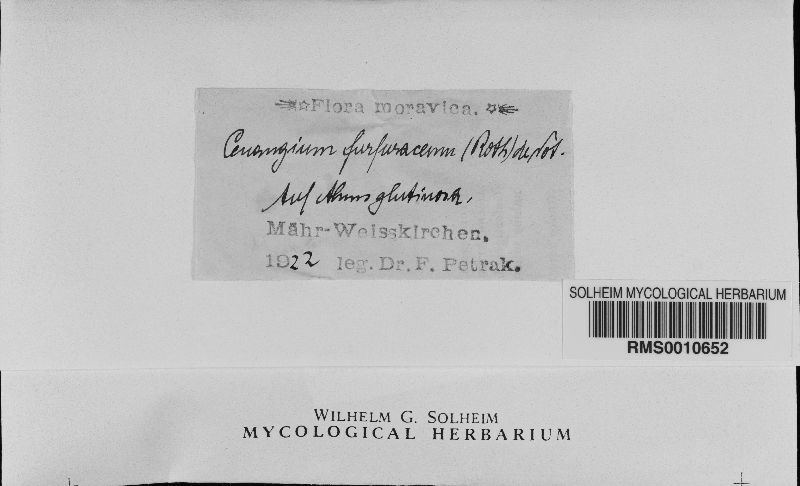 Flora moravica.
Cenangium furfuraceum (Roth) de Not.
Auf Alnus glutinosa.
Mähr-Weisskirchen.
1922 leg. Dr. F. Petrak.
SOLHEIM MYCOLOGICAL HERBARIUM
RMS0010652
WILHELM G. SOLHEIM
MYCOLOGICAL HERBARIUM